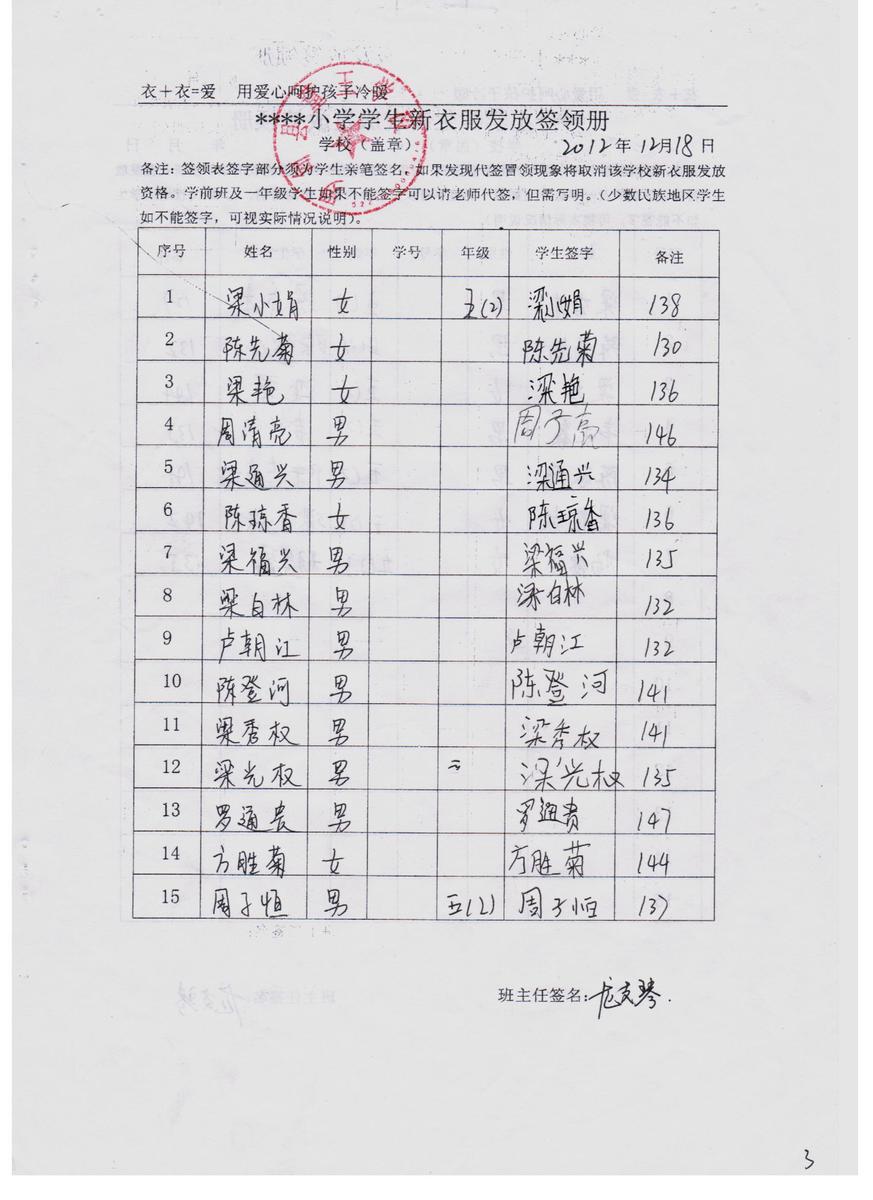 衣+衣=爱　用爱心呵护孩子冷暖
****小学学生新衣服发放签领册
学校（盖章）： 2012年12月18日
备注：签领表签字部分须为学生亲笔签名，如果发现代签冒领现象将取消该学校新衣服发放
资格。学前班及一年级学生如果不能签字可以请老师代签，但需写明。（少数民族地区学生
如不能签字，可视实际情况说明）。
序号 姓名 性别 学号 年级 学生签字 备注
1 梁小娟 女 五(2) 梁小娟 138
2 陈先菊 女 陈先菊 130
3 梁艳 女 梁艳 136
4 周清亮 男 周子亮 146
5 梁通兴 男 梁通兴 134
6 陈琼香 女 陈琼香 136
7 梁福兴 男 梁福兴 135
8 梁自林 男 梁自林 132
9 卢朝江 男 卢朝江 132
10 陈登河 男 陈登河 141
11 梁秀权 男 梁秀权 141
12 梁光权 男 梁光权 135
13 罗通贵 男 罗通贵 147
14 方胜菊 女 方胜菊 144
15 周子恒 男 五(2) 周子恒 137
班主任签名：
3